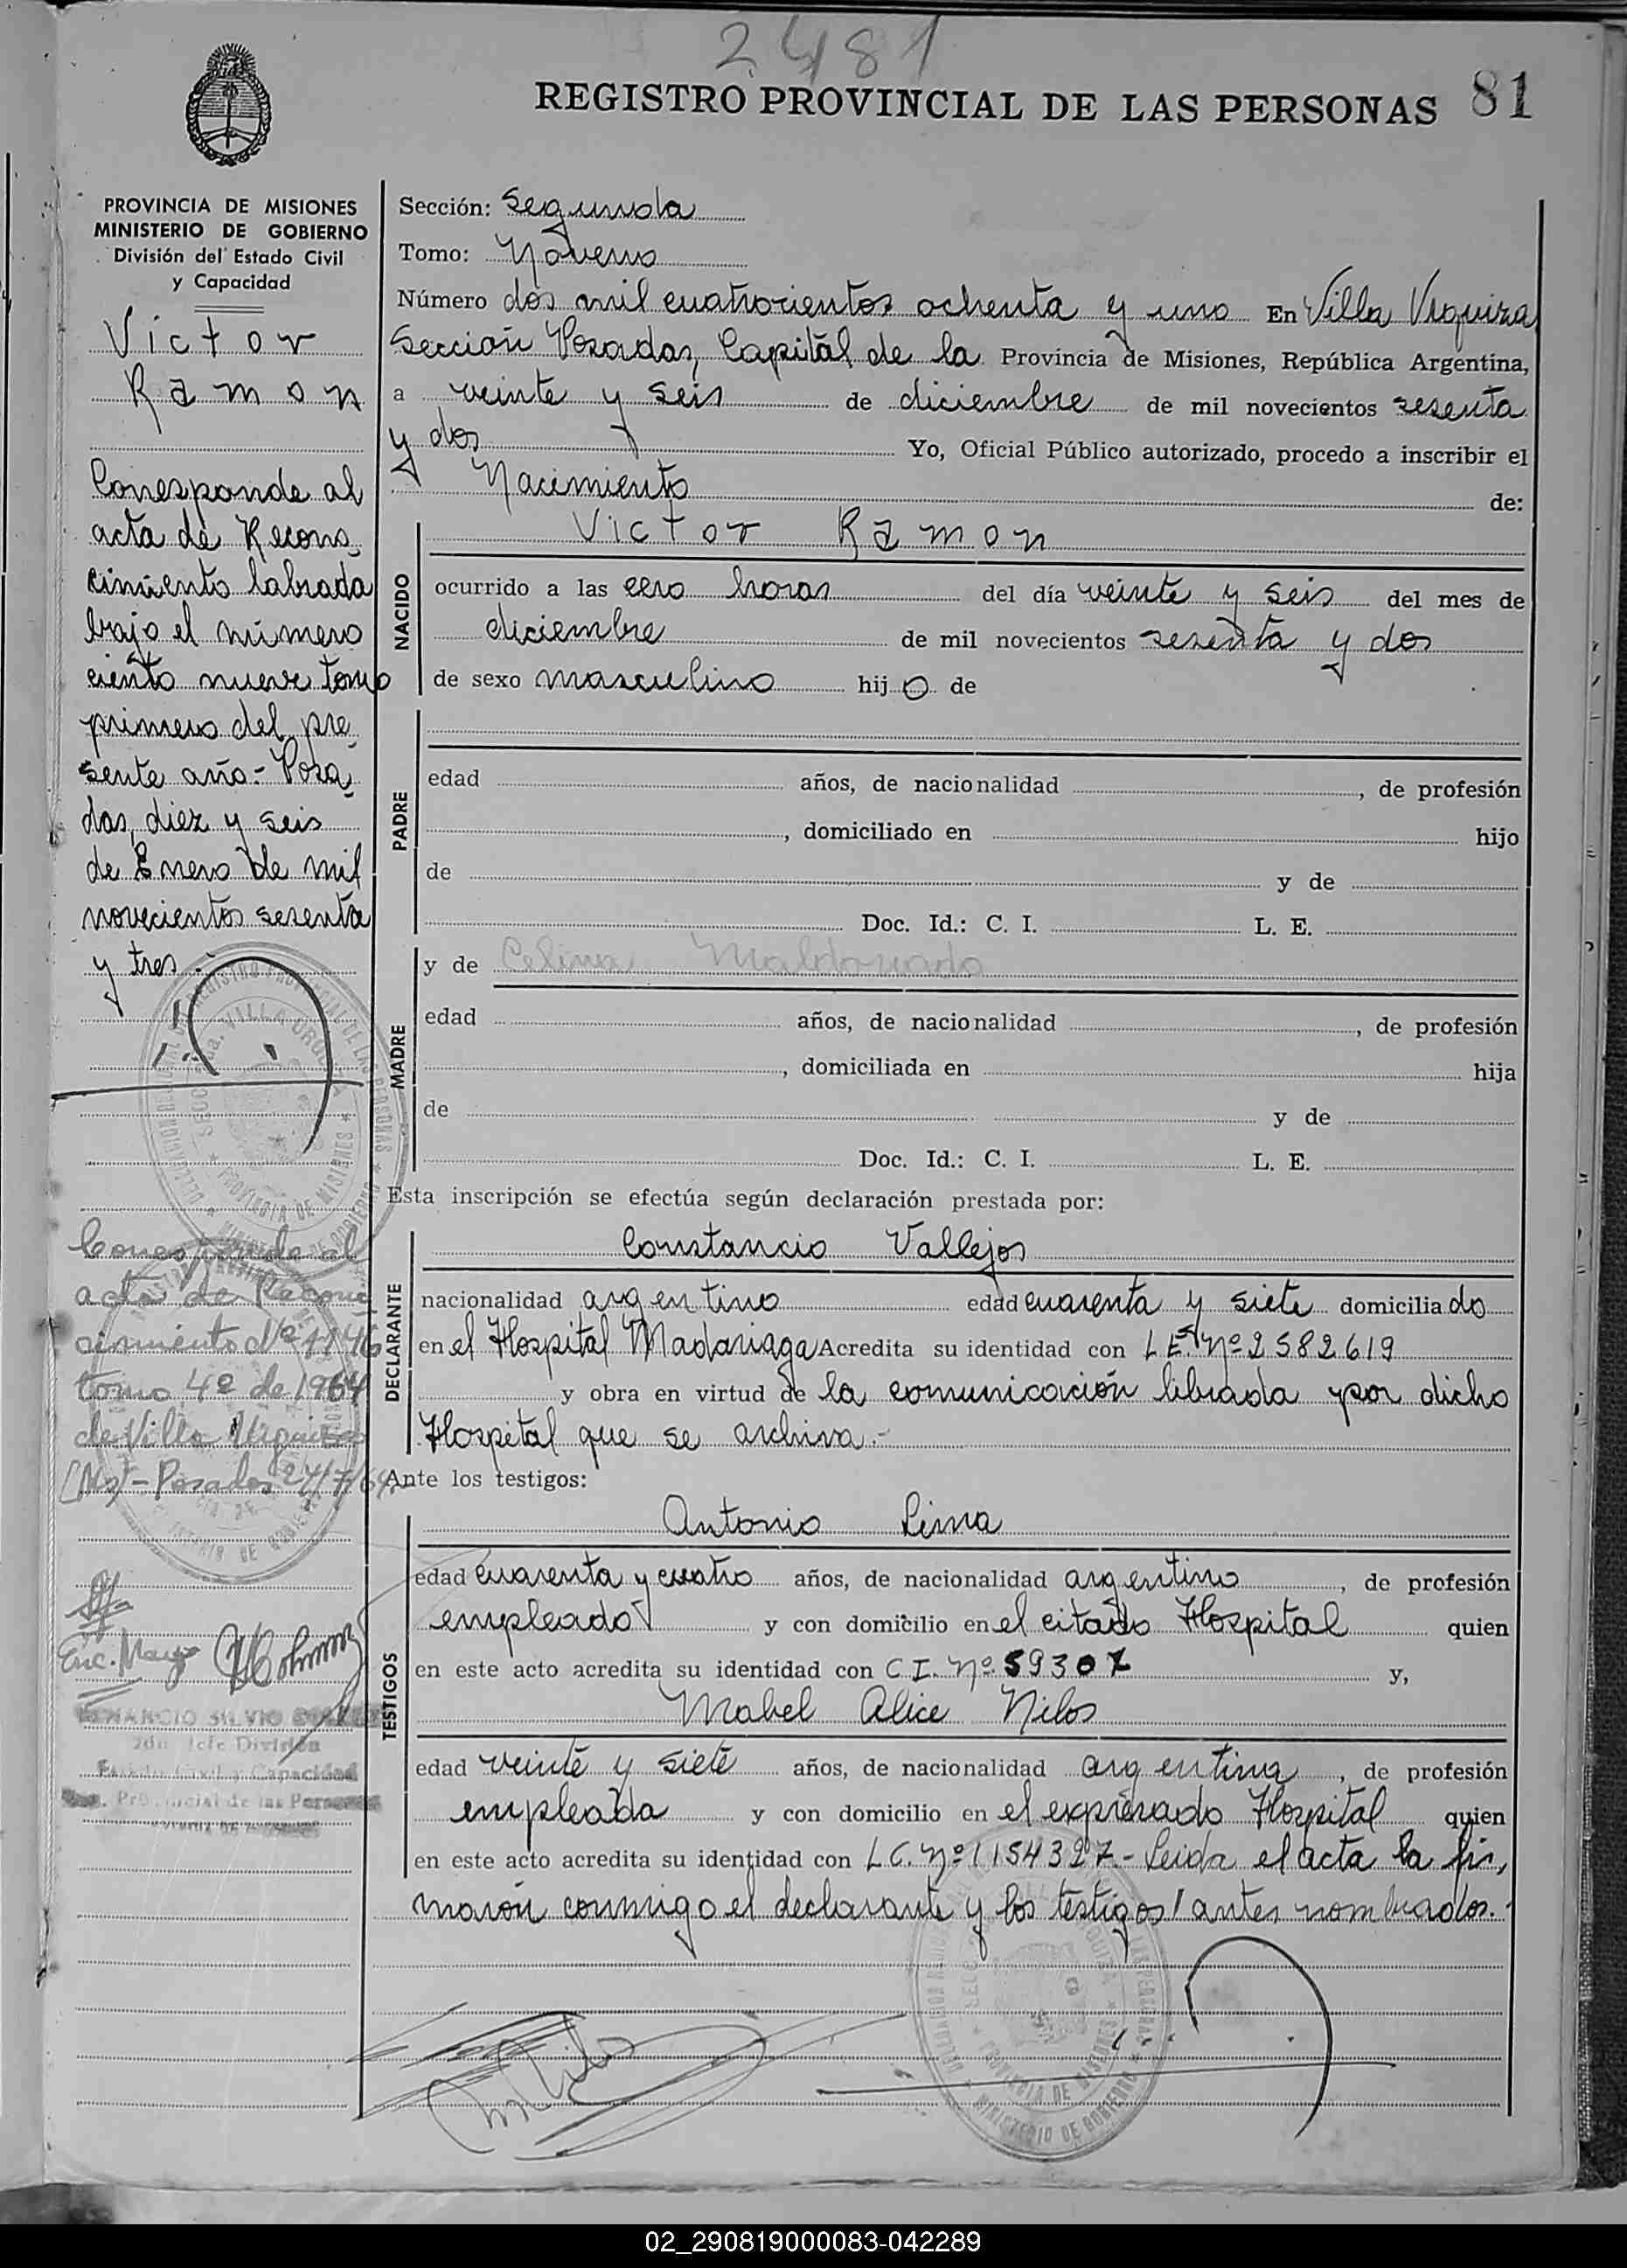 2481
REGISTRO PROVINCIAL DE LAS PERSONAS 81
PROVINCIA DE MISIONES
MINISTERIO DE GOBIERNO
División del Estado Civil
y Capacidad
Victor
Ramon
Corresponde al
acta de Recono
cimiento labrada
bajo el número
ciento nueve tomo
primero del pre
sente año.- Posa
das, diez y seis
de Enero de mil
novecientos sesenta
y tres.-
Corresponde al
acta de Recono
cimiento Nº 1146
tomo 4º de 1964
de Villa Urquiza
(Ms) - Posadas 24/7/64
Enc. Mayo
2do Jefe División
Estado Civil y Capacidad
Sección: Segunda
Tomo: Noveno
Número dos mil cuatrocientos ochenta y uno En Villa Urquiza
Sección Posadas, Capital de la Provincia de Misiones, República Argentina,
a veinte y seis de diciembre de mil novecientos sesenta
y dos Yo, Oficial Público autorizado, procedo a inscribir el
Nacimiento de:
NACIDO
Victor Ramon
ocurrido a las cero horas del día veinte y seis del mes de
diciembre de mil novecientos sesenta y dos
de sexo masculino hijo de
PADRE
edad años, de nacionalidad , de profesión
, domiciliado en hijo
de y de
Doc. Id.: C. I. L. E.
MADRE
y de Celina Maldonado
edad años, de nacionalidad , de profesión
, domiciliada en hija
de y de
Doc. Id.: C. I. L. E.
Esta inscripción se efectúa según declaración prestada por:
DECLARANTE
Constancio Vallejos
nacionalidad argentino edad cuarenta y siete domiciliado
en el Hospital Madariaga Acredita su identidad con L.E. Nº 2582619
y obra en virtud de la comunicación librada por dicho
Hospital que se archiva.-
Ante los testigos:
TESTIGOS
Antonio Lima
edad cuarenta y cuatro años, de nacionalidad argentino, de profesión
empleado y con domicilio en el citado Hospital quien
en este acto acredita su identidad con C I. Nº 59307 y,
Mabel Alice Nilos
edad veinte y siete años, de nacionalidad argentina, de profesión
empleada y con domicilio en el expresado Hospital quien
en este acto acredita su identidad con L C. Nº 1154327.- Leida el acta la fir,
maron conmigo el declarante y los testigos antes nombrados.-
02_290819000083-042289